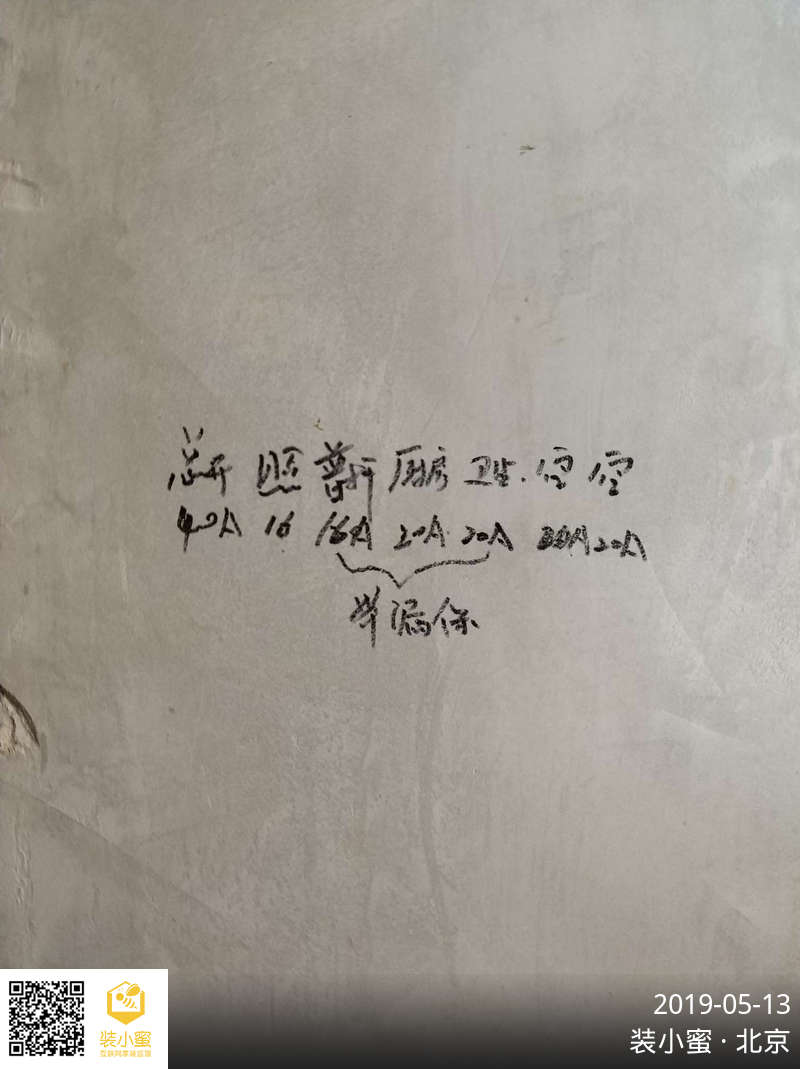 总开 照 普插 厨房 卫生. 空 空
40A 16 16A 20A 20A 20A 20A
带漏保
2019-05-13
装小蜜
装小蜜 · 北京